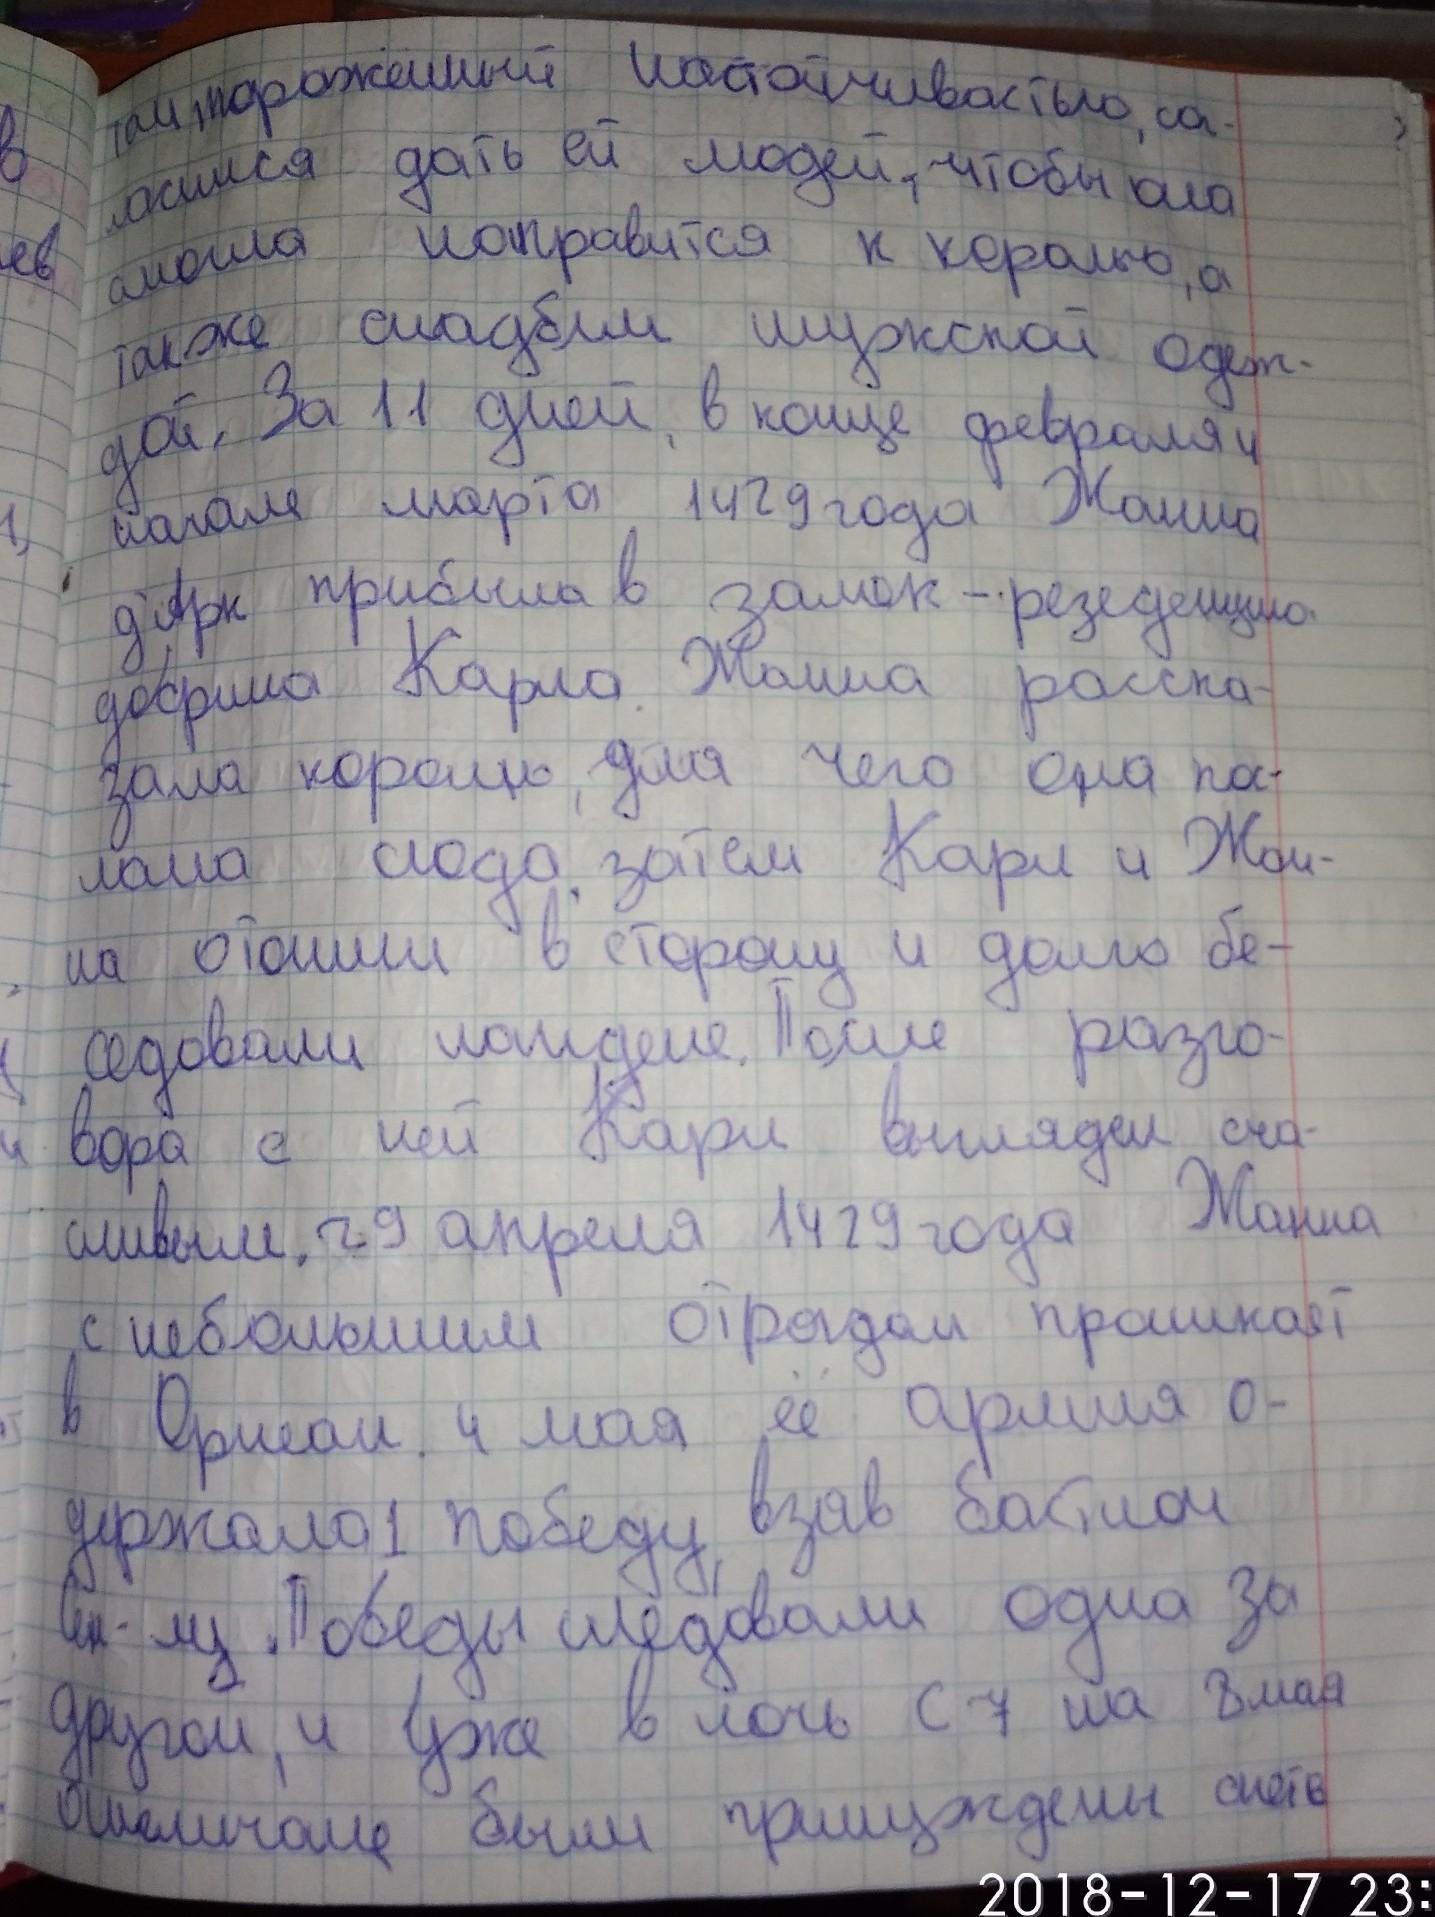 тан, поражённый настойчивостью, со-
лосился дать ей людей, чтобы она
смогла направится к королю, а
также снабдил мужской одеж-
дой. За 11 дней, в конце февраля и
начале марта 1429 года Жанна
д'Арк прибыла в замок - резеденцию
дофина Карла. Жанна расска-
зала королю, для чего она по-
лала сюда, затем Карл и Жан-
на отошли в сторону и долго бе-
седовали наидене. После разго-
вора с ней Карл выглядел сча-
сливым. 29 апреля 1429 года Жанна
с небольшим отрядом проникает
в Орлеан. 4 мая её армия о-
держала 1 победу, взяв бастион
Сен-лу. Победы следовали одна за
другой, и уже в ночь с 7 на 8 мая
были принуждены снять
в
ев
2018-12-17 23: